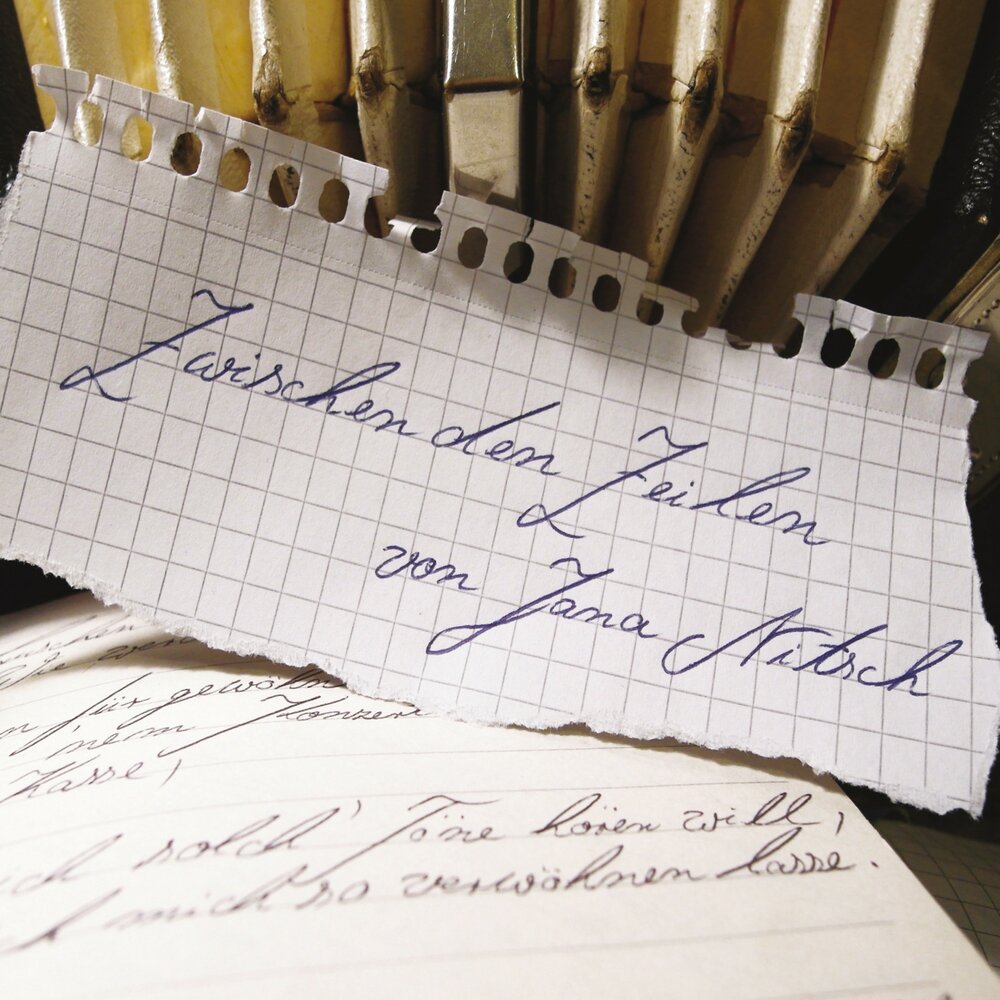 Zwischen den Zeilen
von Jana Nitsch
für
'nem Konzert
Kasse,
solch' Töne hören will,
mich so verwöhnen lasse.